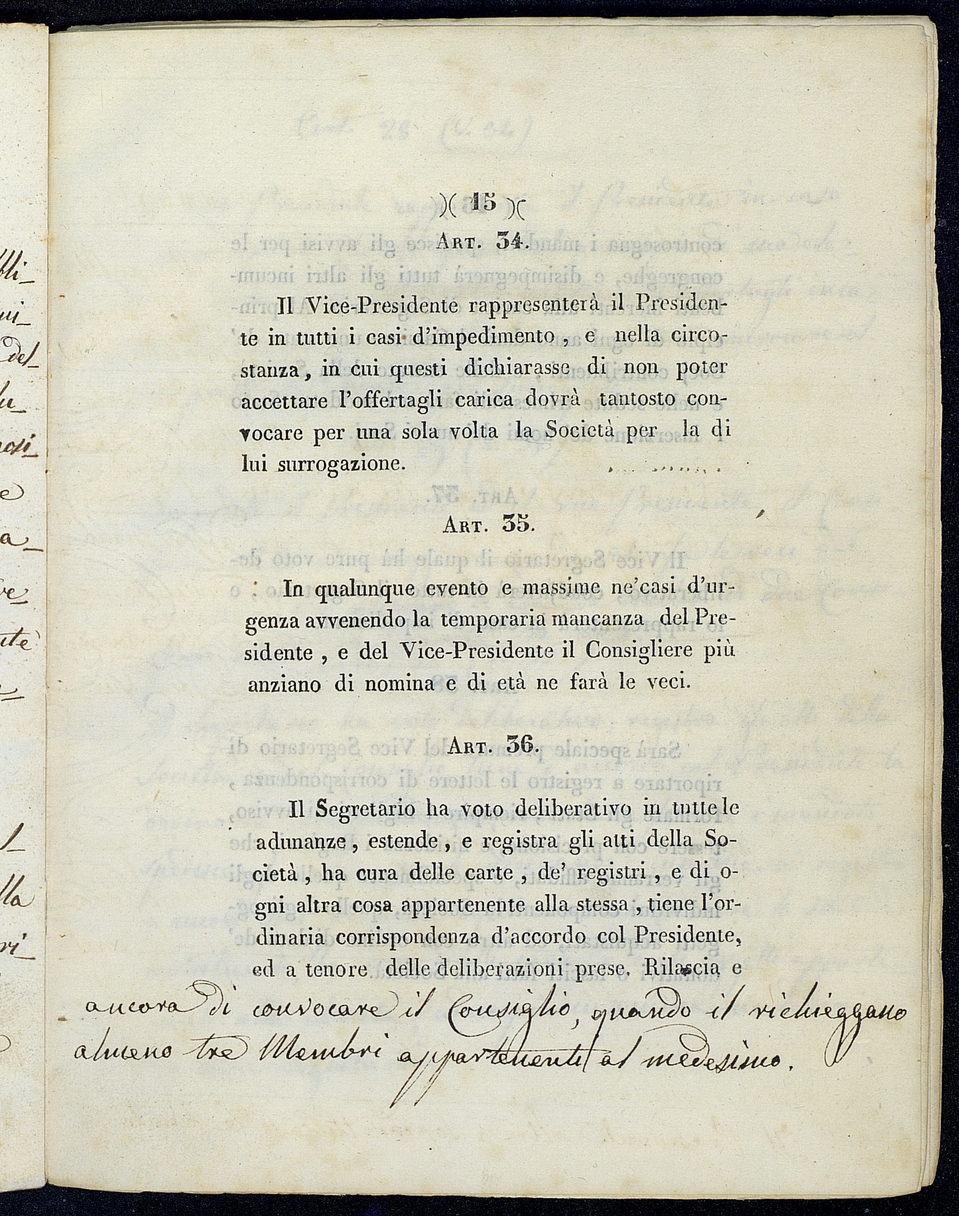 )( 15 )(
ART. 34.
Il Vice-Presidente rappresenterà il Presiden-
te in tutti i casi d'impedimento , e nella circo-
stanza, in cui questi dichiarasse di non poter
accettare l'offertagli carica dovrà tantosto con-
vocare per una sola volta la Società per la di
lui surrogazione.
ART. 35.
In qualunque evento e massime ne'casi d'ur-
genza avvenendo la temporaria mancanza del Pre-
sidente , e del Vice-Presidente il Consigliere più
anziano di nomina e di età ne farà le veci.
ART. 36.
Il Segretario ha voto deliberativo in tutte le
adunanze, estende, e registra gli atti della So-
cietà , ha cura delle carte , de' registri , e di o-
gni altra cosa appartenente alla stessa , tiene l'or-
dinaria corrispondenza d'accordo col Presidente,
ed a tenore delle deliberazioni prese. Rilascia e
ancora di convocare il Consiglio, quando il richieggano
almeno tre Membri appartenenti al medesimo.